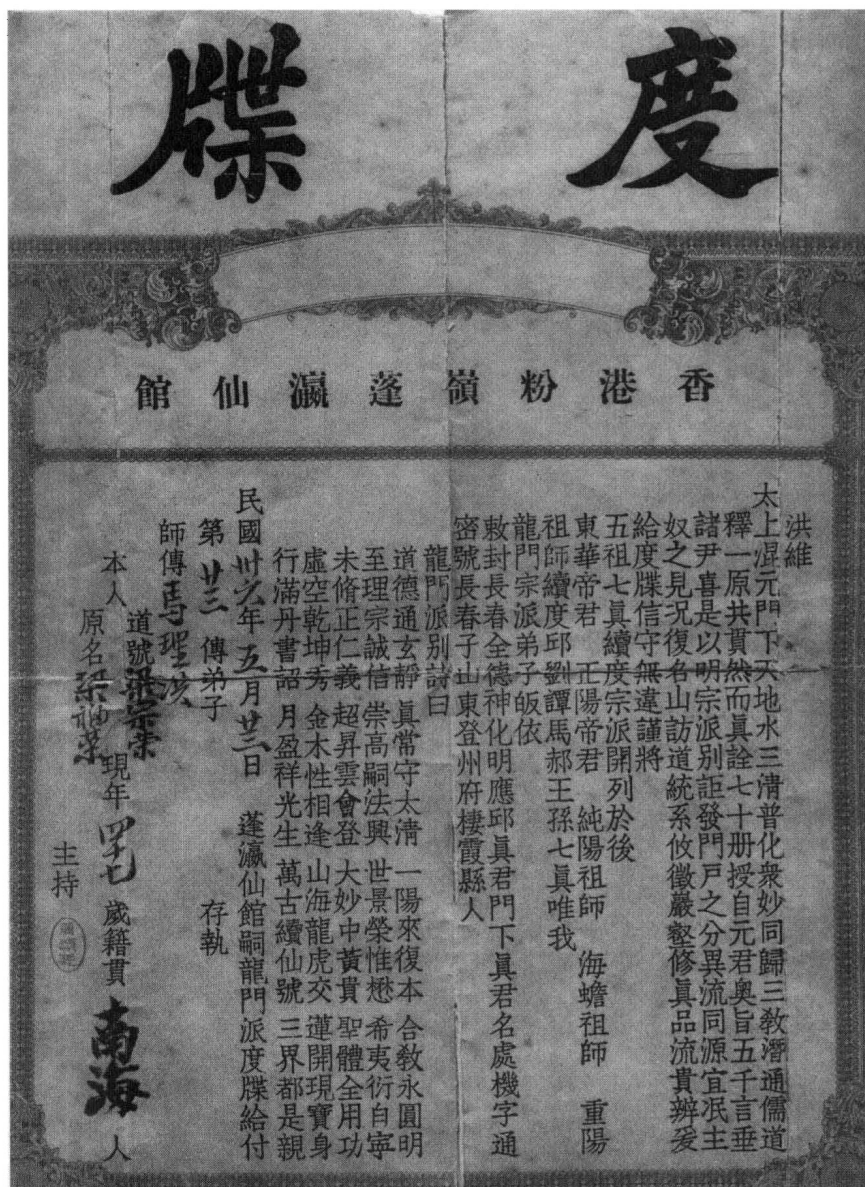 度牒
香港粉嶺蓬瀛仙館
洪維
太上混元門下天地水三清普化衆妙同歸三教潛通儒道
釋一原共貫然而眞詮七十册授自元君奧旨五千言垂
諸尹喜是以明宗派別詎發門戸之分異流同源宜泯主
奴之見况復名山訪道統系攸徵巖壑修眞品流貴辨爰
給度牒信守無違謹將
五祖七眞續度宗派開列於後
東華帝君 正陽帝君 純陽祖師 海蟾祖師 重陽
祖師續度邱劉譚馬郝王孫七眞唯我
龍門宗派弟子皈依
敕封長春全德神化明應邱眞君門下眞君名處機字通
密號長春子山東登州府棲霞縣人
龍門派別詩曰
道德通玄靜 眞常守太清 一陽來復本 合教永圓明
至理宗誠信 崇高嗣法興 世景榮惟懋 希夷衍自寧
未脩正仁義 超昇雲會登 大妙中黃貴 聖體全用功
虛空乾坤秀 金木性相逢 山海龍虎交 蓮開現寶身
行滿丹書詔 月盈祥光生 萬古續仙號 三界都是親
民國卅六年五月廿三日 蓬瀛仙館嗣龍門派度牒給付
第廿三傳弟子 存執
師傳
本人 道號梁宗榮 原名梁 榮 現年四七歲籍貫南海人
主持